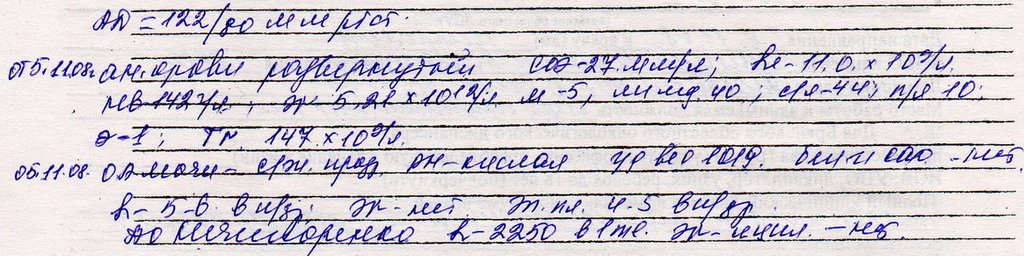 АД = 122/80 мм рт ст.
от 5.11.08г. ан. крови развернутый СОЭ-27 мм/ч; L-11.0 x 10⁹/л.
нв 142 г/л; Эр 5,21 x 10¹²/л. м-5, лимф. 40; с/я-44; п/я 10;
э-1; Тр 147 x 10⁹/л.
05.11.08. ОА мочи - с/ж. прозр. РН-кислая уд вес 1019. белок сах - нет.
L- 5-6 в п/зр. Эр.- нет Эп. пл. 4-5 в п/зр.
по Нечипоренко L-2250 в 1 мл. Эр- цил. - нет.